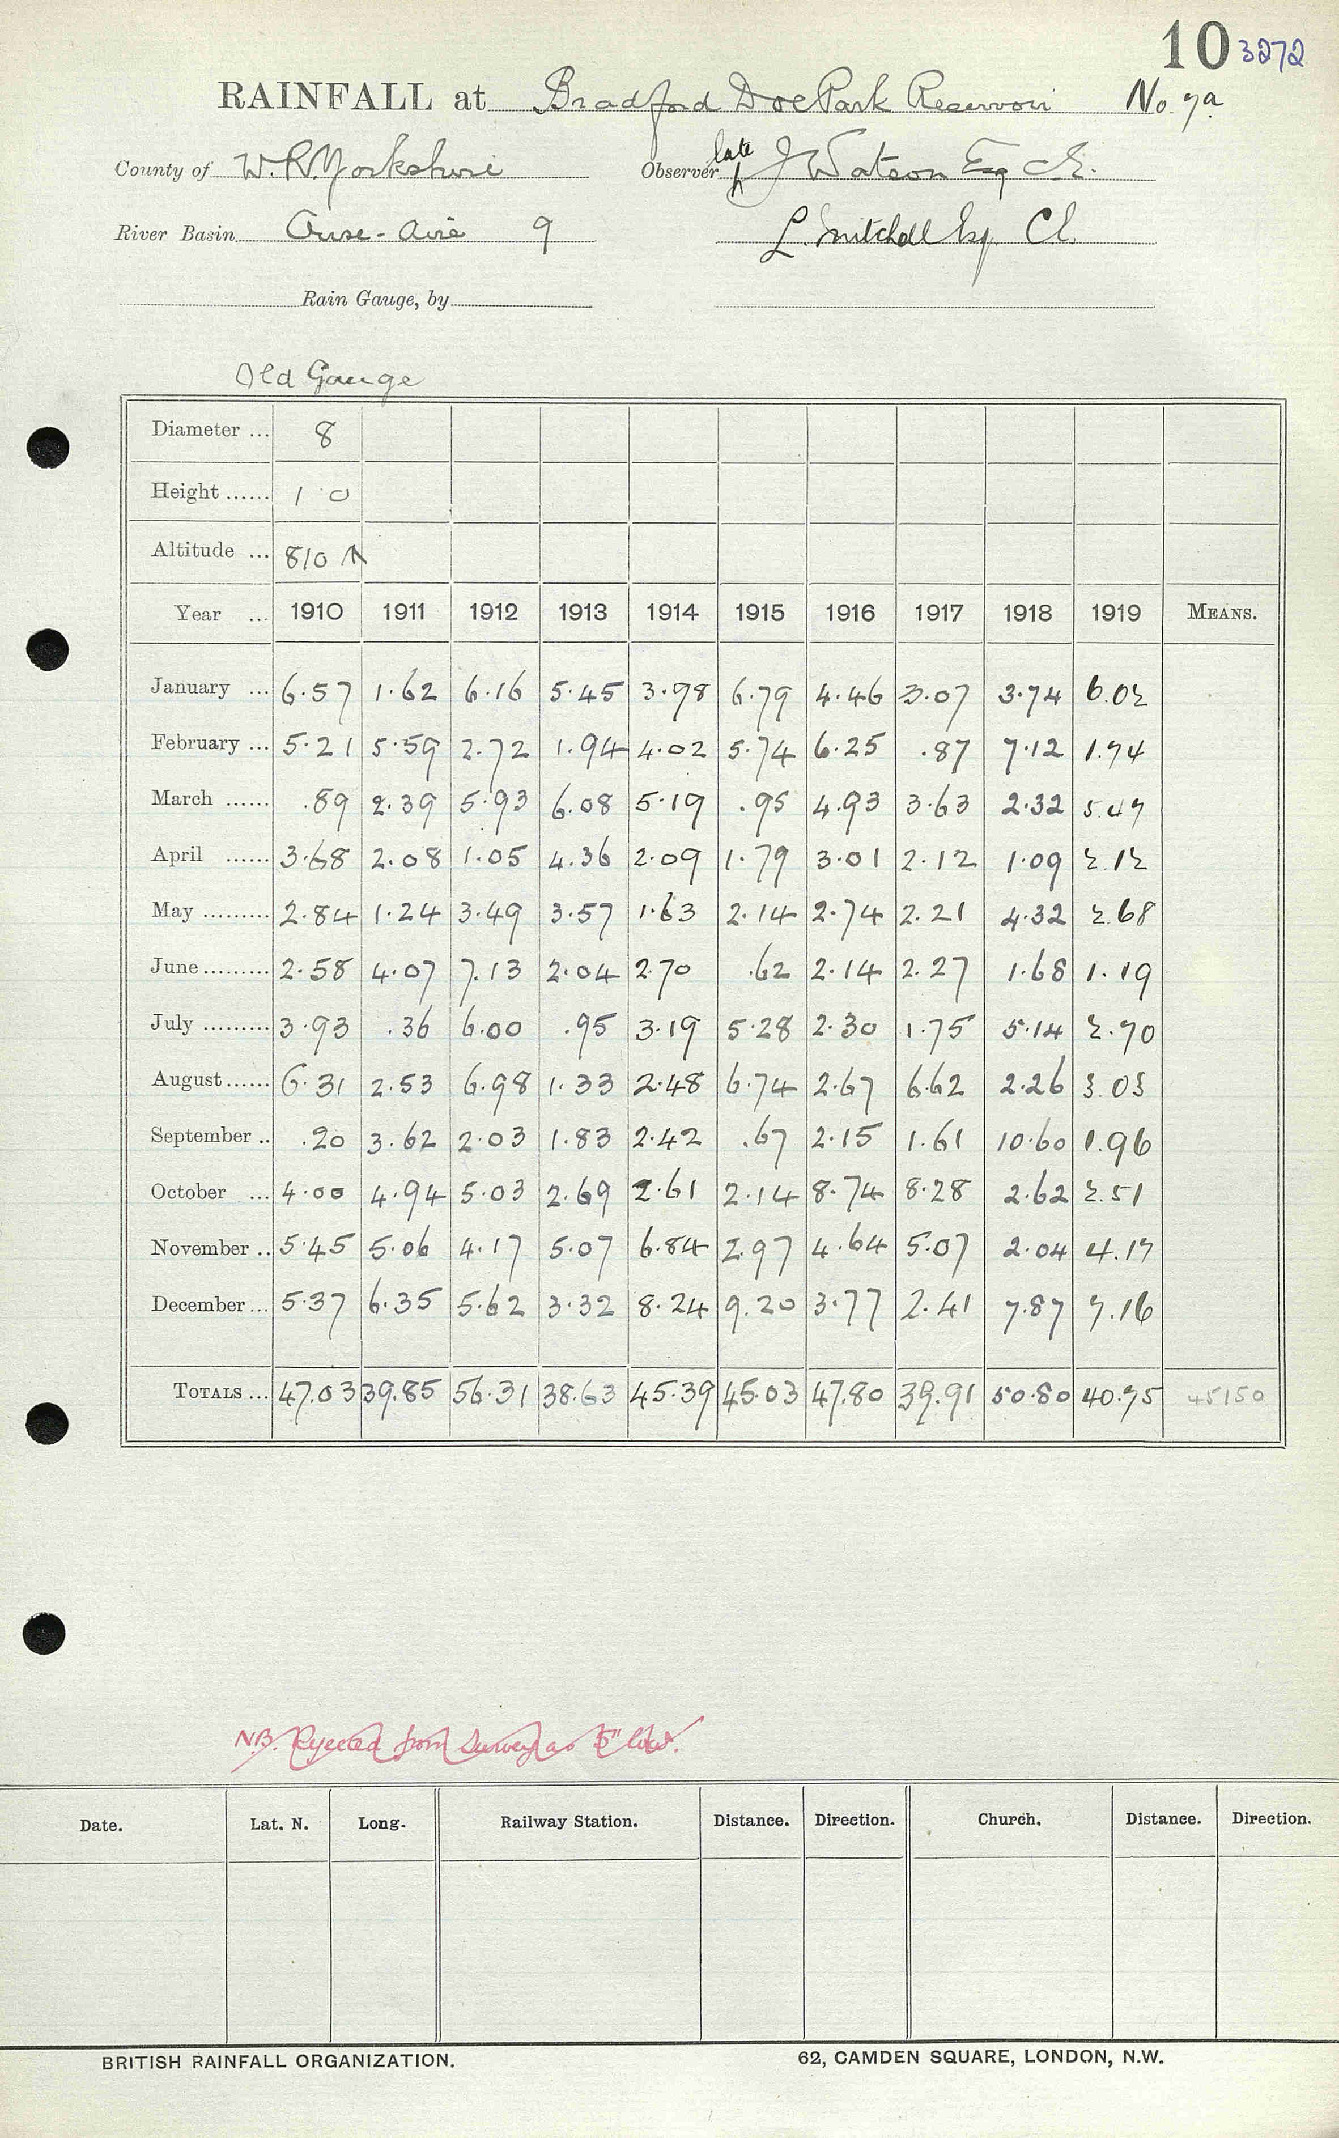 10 3272
RAINFALL at Bradford Doe Park Reservoir No 7a
County of W.R. Yorkshire Observer late J Watson Esq C.E.
River Basin Ouse - Aire 9 L. Mitchell Esq. CE.
Rain Gauge, by
Old Gauge
Diameter ... 8
Height ...... 1 0
Altitude ... 810
Year ... 1910 1911 1912 1913 1914 1915 1916 1917 1918 1919 MEANS.
January ... 6.57 1.62 6.16 5.45 3.98 6.79 4.46 3.07 3.74 6.02
February ... 5.21 5.59 2.72 1.94 4.02 5.74 6.25 .87 7.12 1.74
March ...... .89 2.39 5.93 6.08 5.19 .95 4.93 3.63 2.32 5.47
April ...... 3.68 2.08 1.05 4.36 2.09 1.79 3.01 2.12 1.09 2.12
May ......... 2.84 1.24 3.49 3.57 1.63 2.14 2.74 2.21 4.32 2.68
June ......... 2.58 4.07 7.13 2.04 2.70 .62 2.14 2.27 1.68 1.19
July ......... 3.93 .36 6.00 .95 3.19 5.28 2.30 1.75 5.14 2.70
August ...... 6.31 2.53 6.98 1.33 2.48 6.74 2.67 6.62 2.26 3.03
September .. .20 3.62 2.03 1.83 2.42 .67 2.15 1.61 10.60 1.96
October ... 4.00 4.94 5.03 2.69 2.61 2.14 8.74 8.28 2.62 2.51
November .. 5.45 5.06 4.17 5.07 6.84 2.97 4.64 5.07 2.04 4.17
December ... 5.37 6.35 5.62 3.32 8.24 9.20 3.77 2.41 7.87 7.16
TOTALS ... 47.03 39.85 56.31 38.63 45.39 45.03 47.80 39.91 50.80 40.75 45150
NB. Rejected from Survey as 5" low.
Date. Lat. N. Long. Railway Station. Distance. Direction. Church. Distance. Direction.
BRITISH RAINFALL ORGANIZATION. 62, CAMDEN SQUARE, LONDON, N.W.